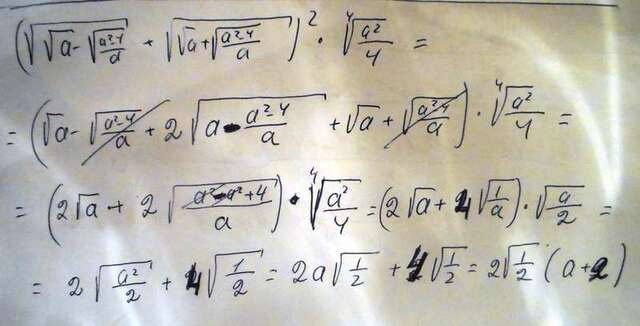 (√(√a - √((a²-4)/a)) + √(√a + √((a²-4)/a)))² · ⁴√(a²/4) =
= (√a - √((a²-4)/a) + 2√(a - (a²-4)/a) + √a + √((a²-4)/a)) · ⁴√(a²/4) =
= (2√a + 2√((a²-a²+4)/a)) · ⁴√(a²/4) = (2√a + 4√(1/a)) · √(a/2) =
= 2√(a²/2) + 4√(1/2) = 2a√(1/2) + 4√(1/2) = 2√(1/2) (a+2)